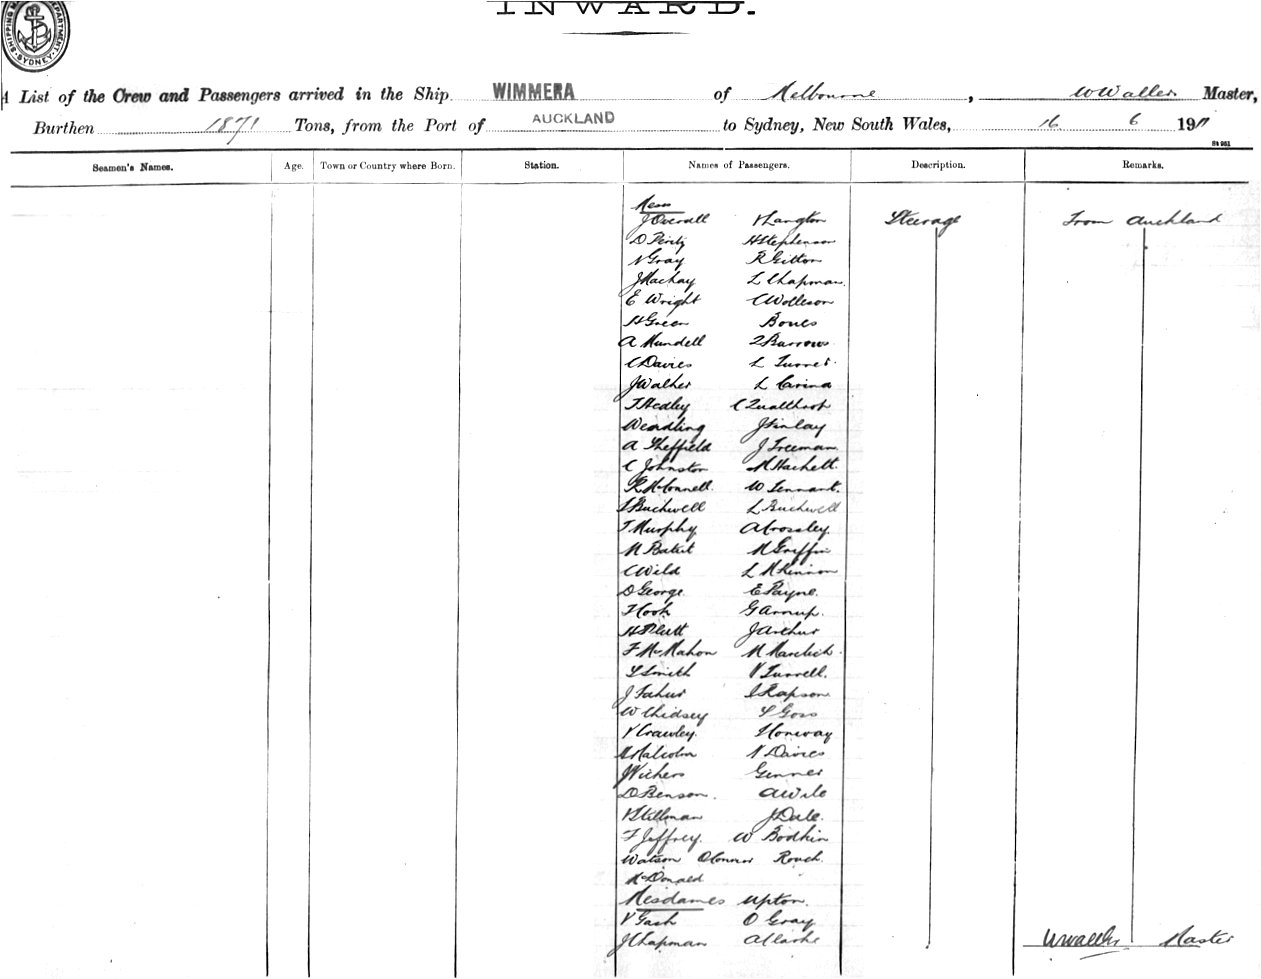 INWARD.
SHIPPING DEPARTMENT. SYDNEY
A List of the Crew and Passengers arrived in the Ship WIMMERA of Melbourne, W Waller Master,
Burthen 1871 Tons, from the Port of AUCKLAND to Sydney, New South Wales, 16 6 1911
St 951
Seamen's Names. Age. Town or Country where Born. Station. Names of Passengers. Description. Remarks.
Mess
J Overall V Langton Steerage From Auckland
D H Stephenson
N Gray R Gitton
J Mackay L Chapman.
E Wright C Wolleson
H Green Bones
A Mundell Burrows
C Davies L Turner
J Walker L Carina
T Hedley C Qualthrop
Wendling J Finlay
A Sheffield J Freeman
C Johnston M Hackett.
R McConnell. W Tennant.
S Buckwell L Buckwell
T Murphy A Crossley.
M Grffin
C Wild L McKinnon
D George. E Payne.
Hook G
H J Arthur
F McMahon M
S Smith V Turrell.
J S Rapson
W Chidsey S Goss
V Crawley.
Malcolm V Davies
J Vickers Genner
D Benson. A Wile
V Stillman J Dale.
F Jeffrey. W Bodkin
Watson O'Connor Rouch.
McDonald
Mesdames Upton.
V Gash O Gray
J Chapman A Clarke W Waller Master